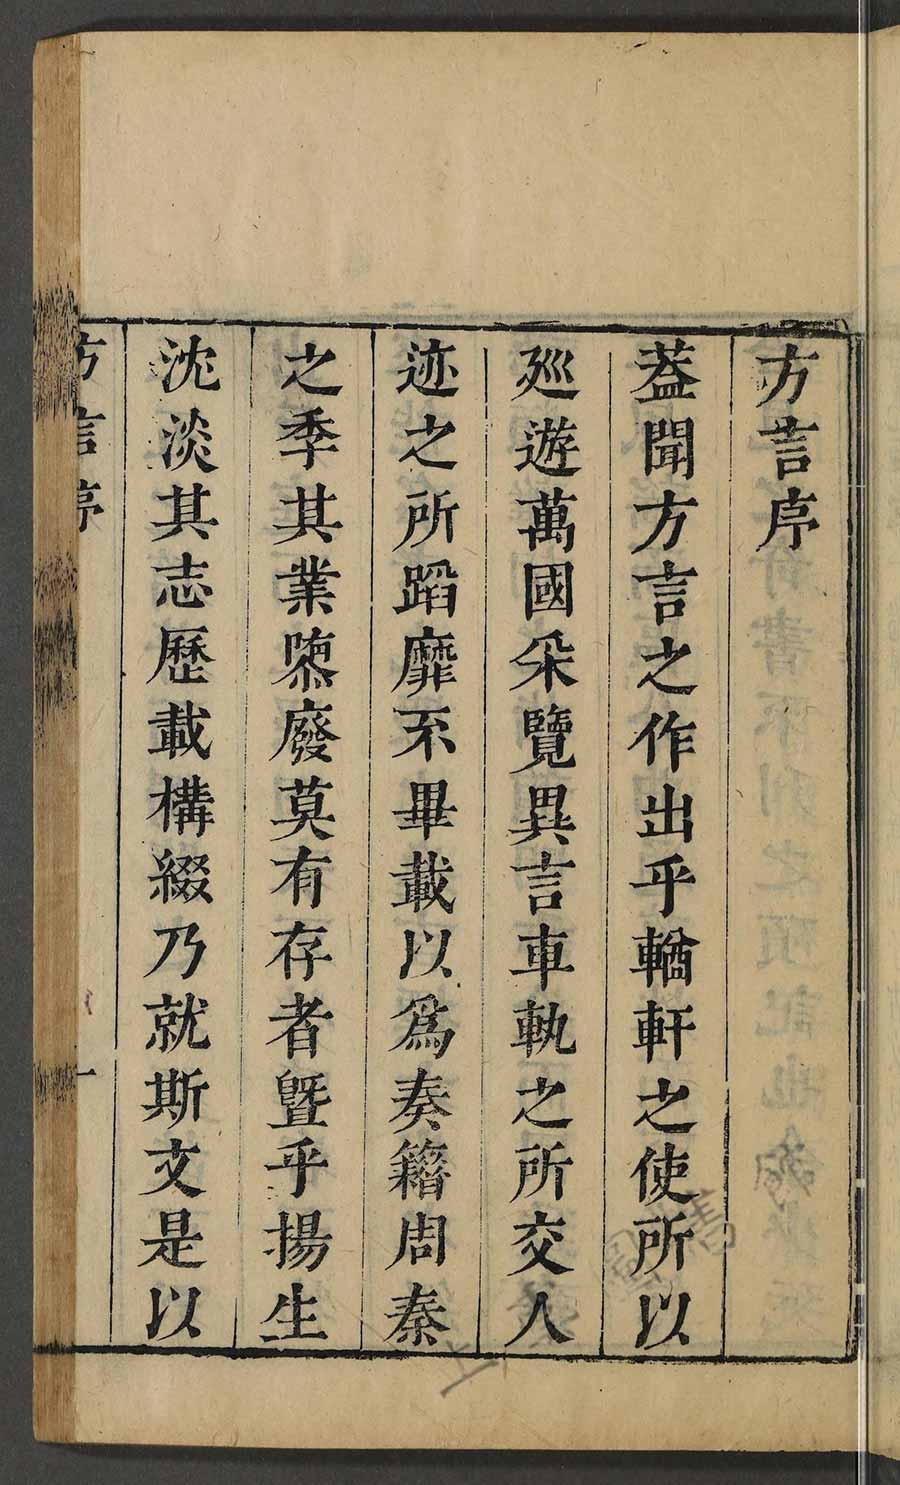 方言序
蓋聞方言之作出乎輶軒之使所以
廵遊萬國采覽異言車軌之所交人
迹之所蹈靡不畢載以爲奏籍周秦
之季其業隳廢莫有存者曁乎揚生
沈淡其志歷載構綴乃就斯文是以
方言序
一